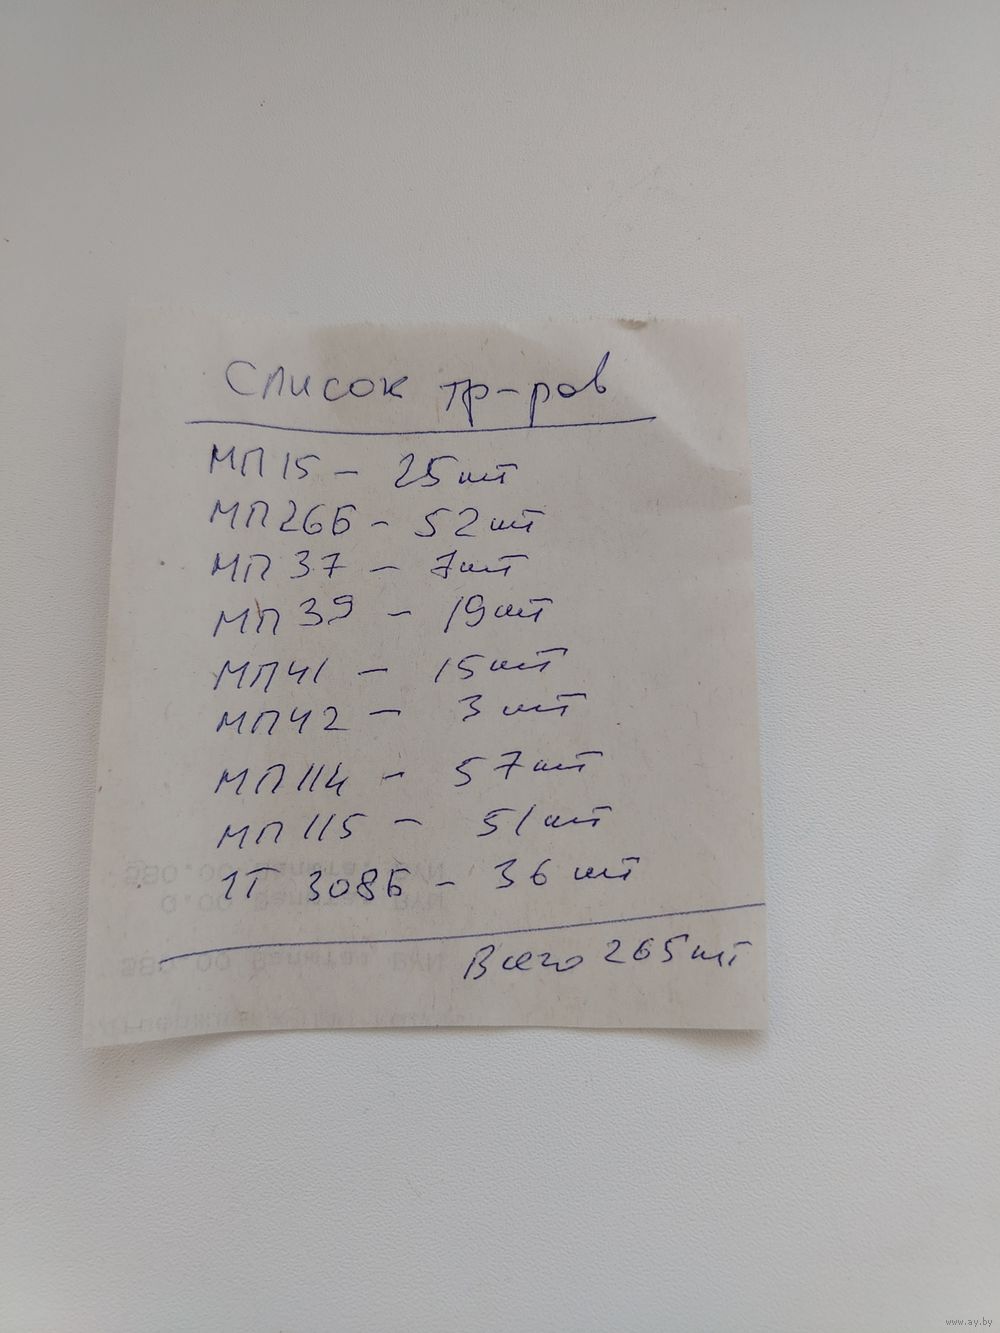 Список тр-ров
МП15 - 25шт
МП26Б - 52шт
МП37 - 7шт
МП39 - 19шт
МП41 - 15шт
МП42 - 3шт
МП114 - 57шт
МП115 - 51шт
1Т 308Б - 36шт
Всего 265шт
www.ay.by